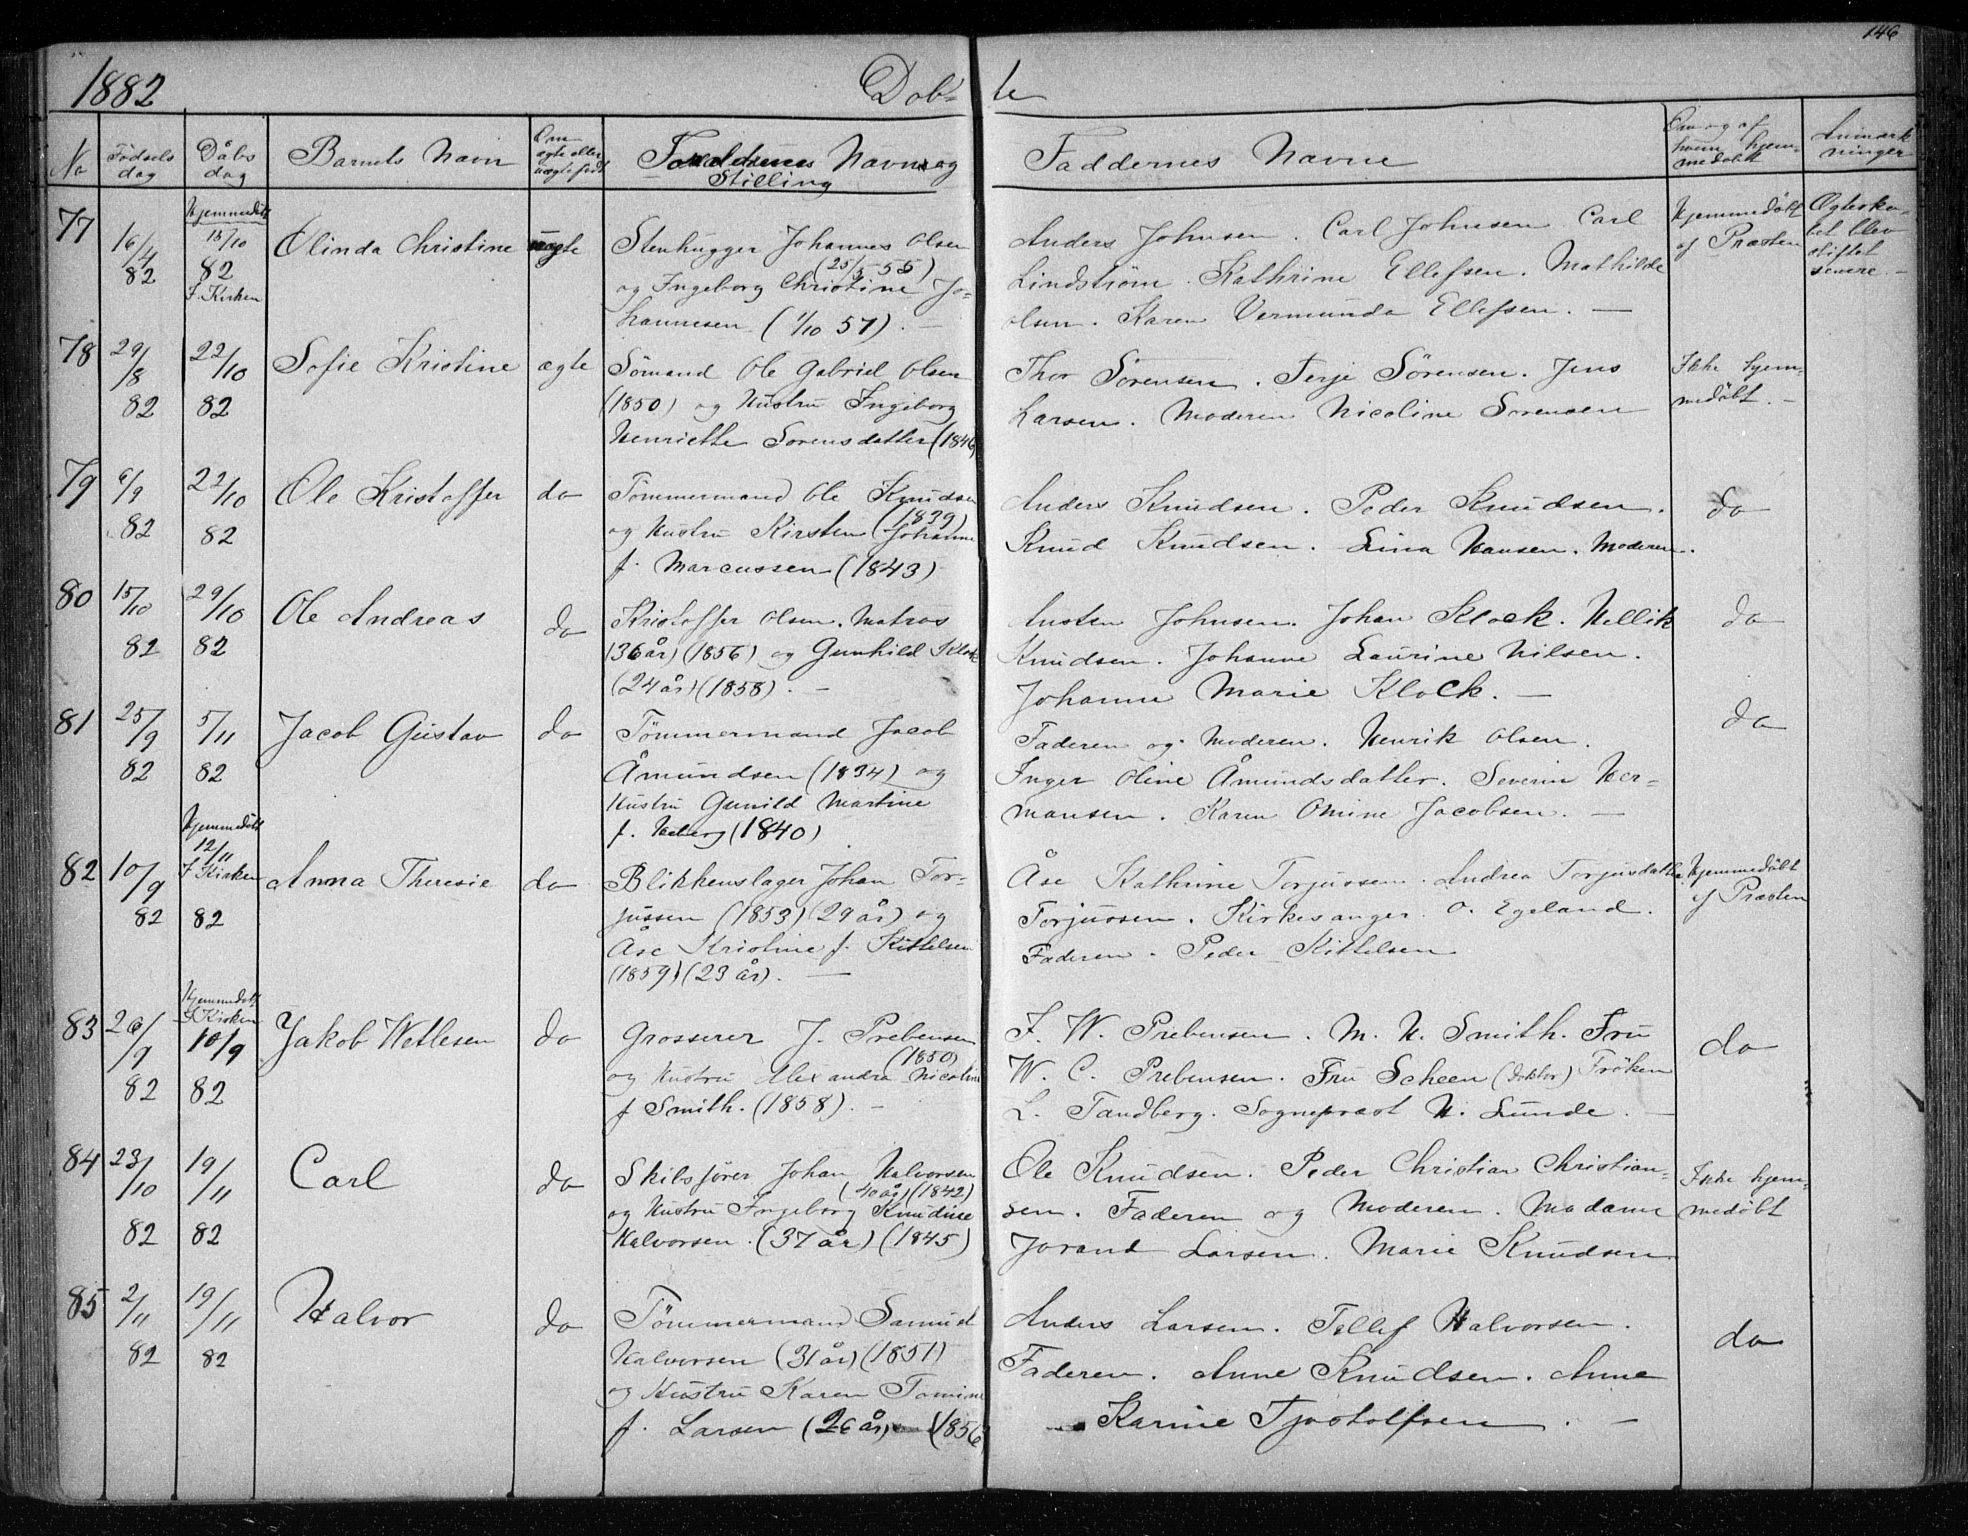 146
1882 Døb- te
No
Fødsels dag
Dåbs dag
Barnets Navn
Om ægte eller uægte født
Forældrenes Navn og Stilling
Faddernes Navne
Om og af hvem hjem- medøbt
Anmærk ninger
77
16/4 82
Hjemmedøbt
15/10 82
I Kirken
Olinda Christine
uægte
Stenhugger Johannes Olsen
(25/5 55)
og Ingeborg Christine Jo-
hannesen (1/10 57). —
Anders Johnsen. Carl Johnsen Carl
Lindstrøm. Kathrine Ellefsen. Mathilde
Olsen. Karen Vermunda Ellefsen. —
Hjemmedøbt
af Præsten
Ægteska-
bet blev
stiftet
senere. —
78
29/8 82
22/10 82
Sofie Kristine
ægte
Sömand Ole Gabriel Olsen
(1850) og Hustru Ingeborg
Henriette Sorensdatter (1846)
Thor Sörensen. Terje Sörensen. Jens
Larsen. Moderen Nicoline Sorensen
Ikke hjem-
medøbt. —
79
6/9 82
22/10 82
Ole Kristoffer
do
Tömmermand Ole Knudsen
(1839)
og Hustru Kirsten Johanne
f. Marcussen (1843)
Anders Knudsen. Peder Knudsen.
Knud Knudsen. Lina Hansen. Moderen.
do
80
15/10 82
29/10 82
Ole Andreas
do
Kristoffer Olsen. Matros
(36 år) (1856) og Gunhild Klock
(24 år) (1858). —
Austen Johnsen. Johan Klock. Kellik
Knudsen. Johanne Laurine Nilsen.
Johanne Marie Klock. —
do
81
25/9 82
5/11 82
Jacob Gustav
do
Tömmermand Jacob
Åmundsen (1834) og
Hustru Gunild Martine
f. Heberg (1840)
Faderen og Moderen. Henrik Olsen.
Inger Oline Åmundsdatter. Severin Her-
mansen. Karen Omine Jacobsen. —
do
82
10/9 82
Hjemmedøbt
12/11
I Kirken
82
Anna Theresie
do
Blikkenslager Johan Tor-
jussen (1853) (29 år) og
Åse Kristine f. Kittelsen
(1859) (23 år). —
Åse Kathrine Torjussen. Andrea Torjusdatter
Torjussen. Kirkesanger O. Egeland.
Faderen. Peder Kittelsen
Hjemmedøbt
af Præsten
83
26/9 82
Hjemmedøbt
I Kirken
10/9 82
Jakob Wetlesen
do
Grosserer J. Prebensen
(1850)
og Hustru Alexandra Nicoline
f Smith. (1858). —
F. W. Prebensen. M. N. Smith. Fru
W. C. Prebensen. Fru Scheen (doktor) Fröken
L. Tandberg. Sognepræst N. Lunde. —
do
84
23/10 82
19/11 82
Carl
do
Skibsförer Johan Halvorsen
(40 år) (1842)
og Hustru Ingeborg Knudine
Halvorsen. (37 år) (1845)
Ole Knudsen. Peder Christian Christian-
sen. Faderen og Moderen. Madame
Jorand Larsen. Marie Knudsen.
Ikke hjem-
medøbt
85
2/11 82
19/11 82
Halvor
do
Tömmermand Samuel
Halvorsen (31 år) (1851)
og Hustru Karen Tomine
f. Larsen (26 år) (1856)
Anders Larsen. Tellef Halvorsen.
Faderen. Anne Knudsen. Anne
Karine Tjostolfsen. —
do